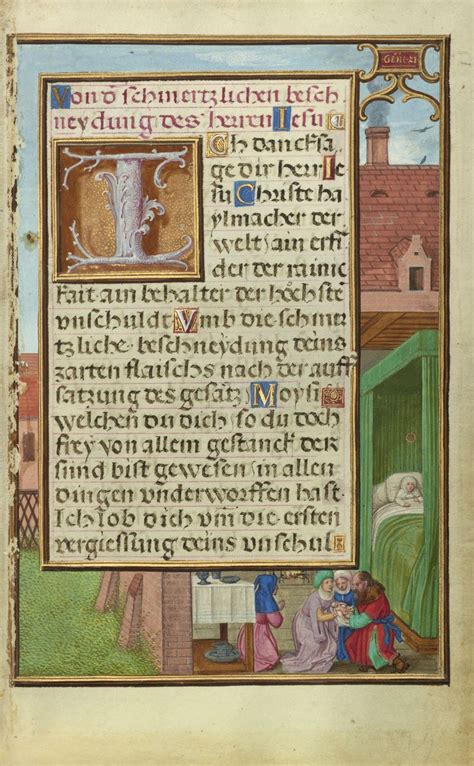 Gene·21
Von d̄ schmertzlichen besch
neydung des herren Iesu
Ich dancksa
ge dir herr Ie
su Christe ha
ylmacher der
welt ain erff
der der rainic
kait ain behalter der höchste
vnschuldt Vmb die schmer
tzliche beschneydung deins
zarten flaischs nach der auff
satzung des gesatz Moysi
welchen du dich so du doch
frey von allem gestanck der
sünd bist gewesen in allen
dingen vnderworffen hast·
Ich lob dich vm̄ die ersten
vergiessung deins vnschul